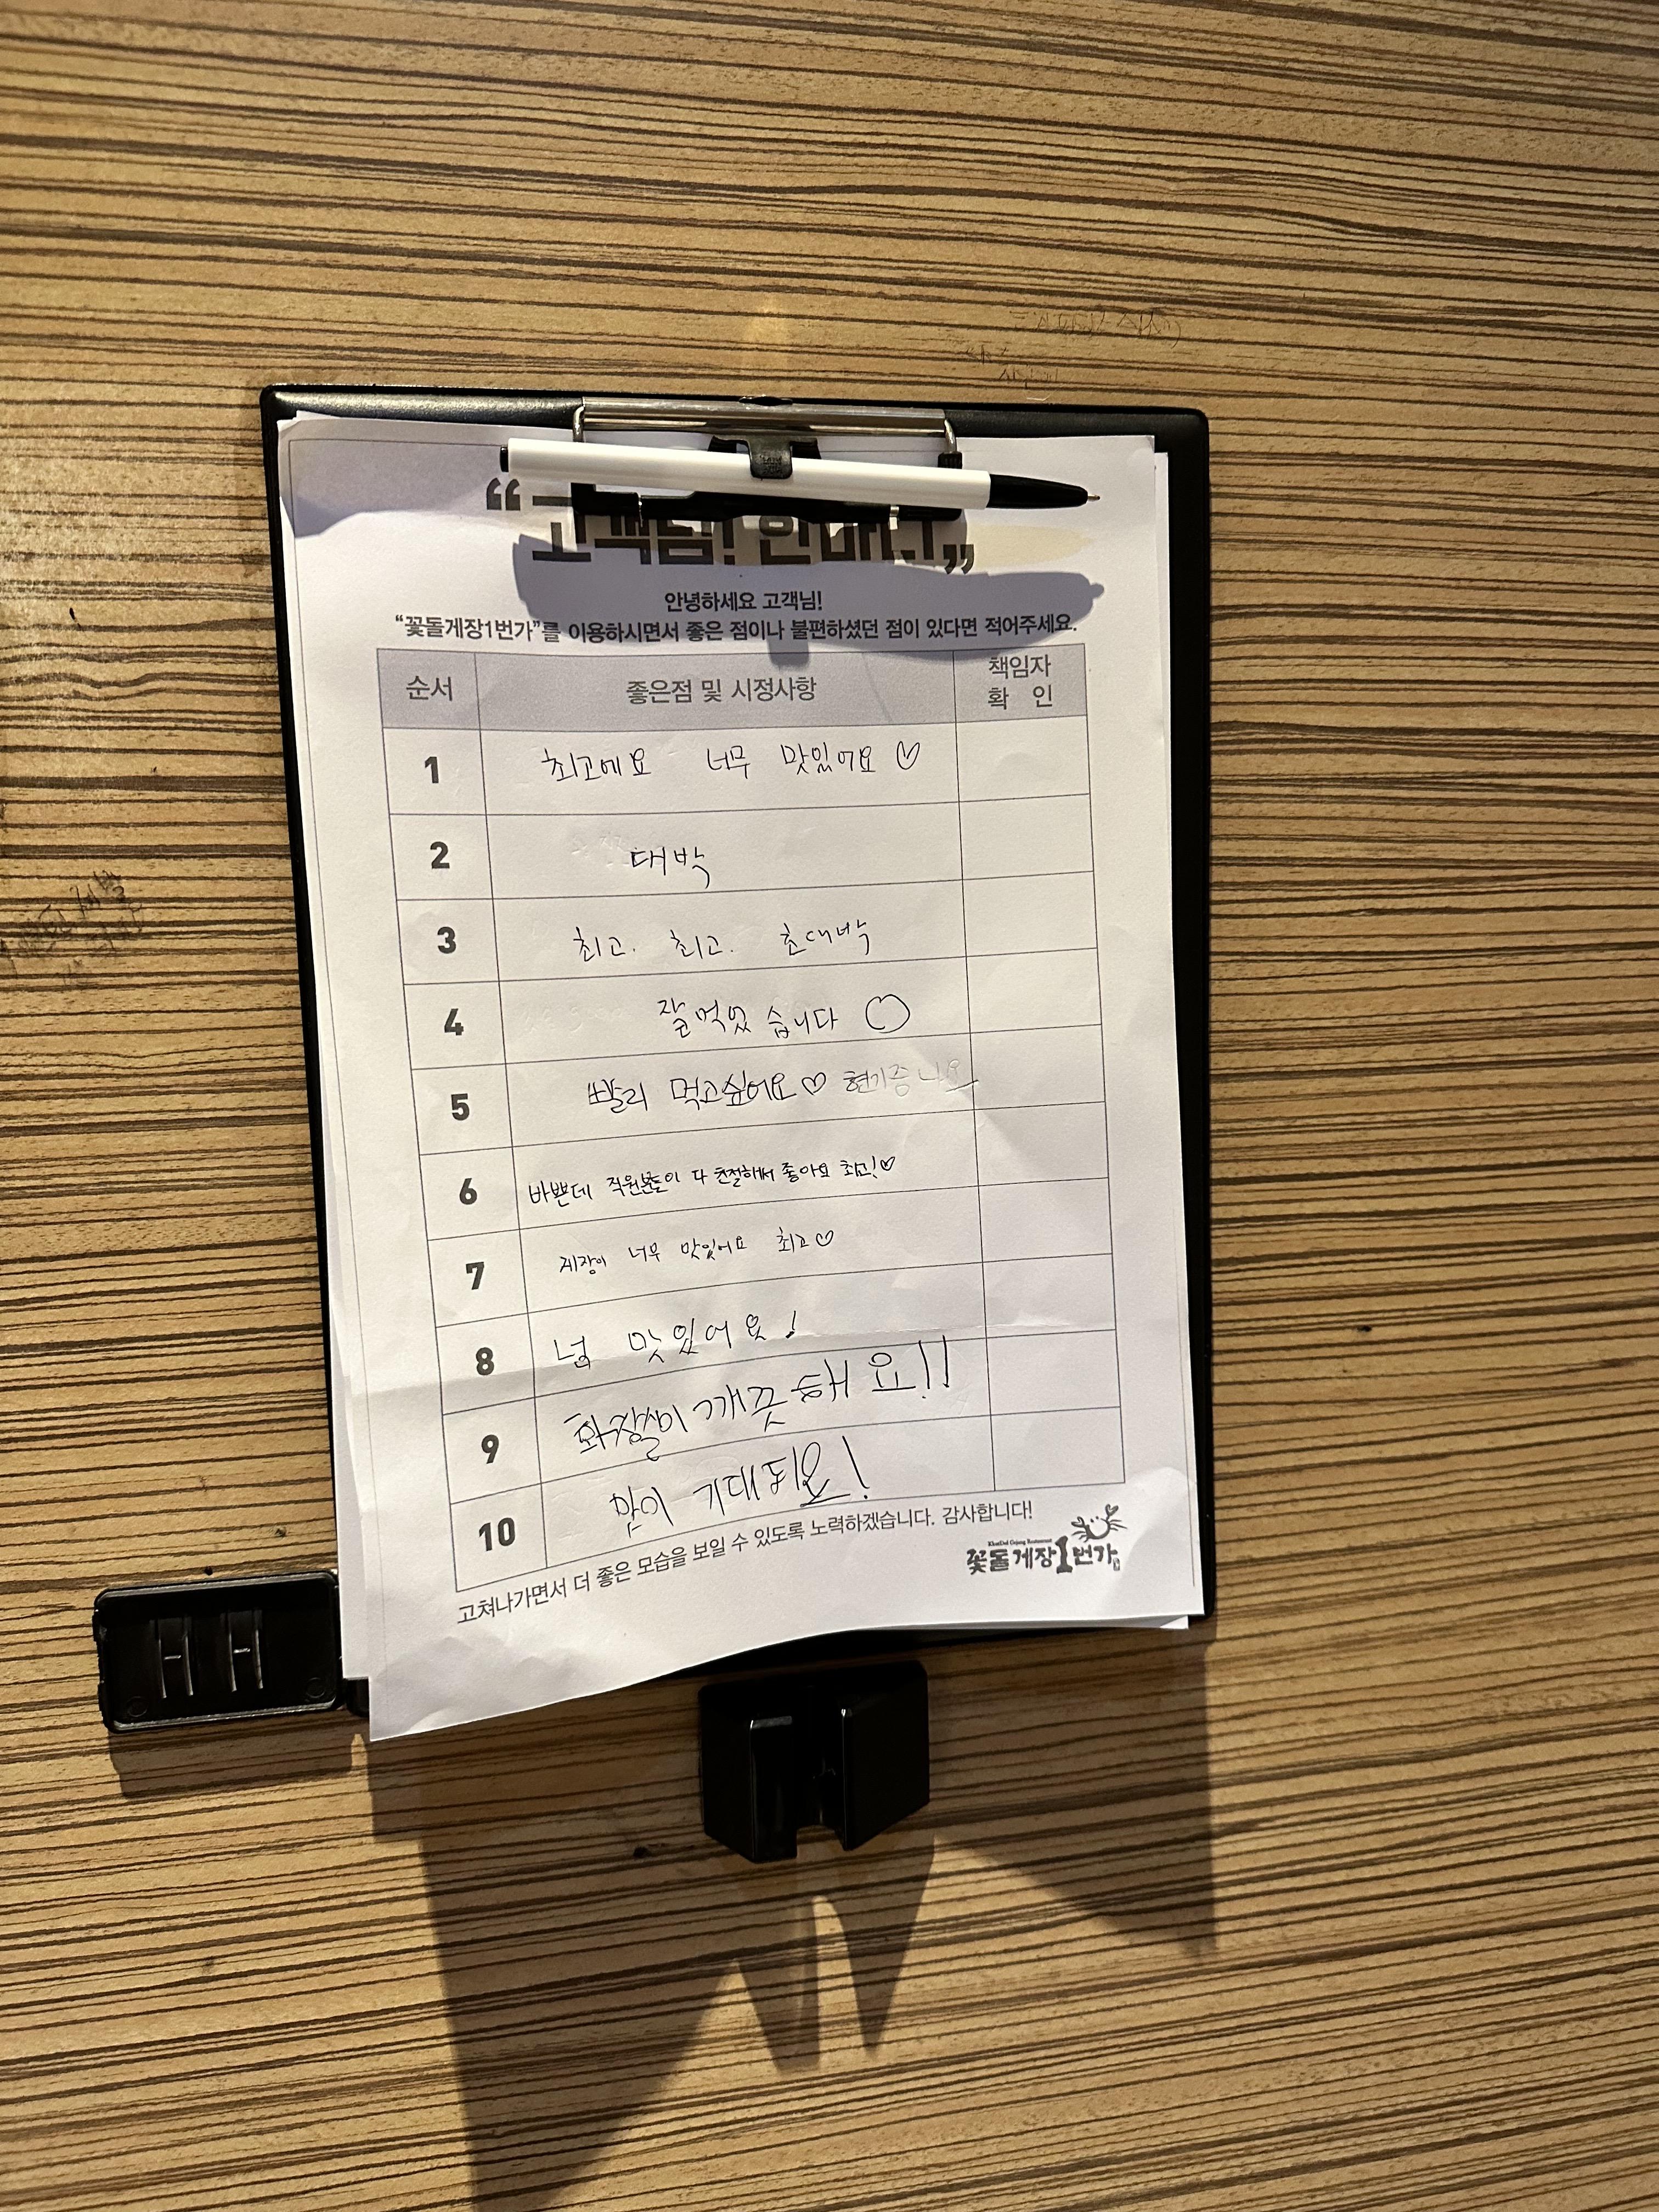 “고객님! 한마디”
안녕하세요 고객님!
“꽃돌게장1번가”를 이용하시면서 좋은 점이나 불편하셨던 점이 있다면 적어주세요.
순서 좋은점 및 시정사항 책임자 확 인
1 최고에요 너무 맛있어요 ♡
2 대박
3 최고. 최고. 초대박
4 잘 먹었습니다 ♡
5 빨리 먹고싶어요 ♡ 현기증 나요
6 바쁜데 직원분들이 다 친절해서 좋아요 최고!♡
7 게장이 너무 맛있어요 최고♡
8 넘 맛있어요!
9 화장실이 깨끗해요!!
10 맛이 기대되요!
고쳐나가면서 더 좋은 모습을 보일 수 있도록 노력하겠습니다. 감사합니다!
꽃돌게장1번가